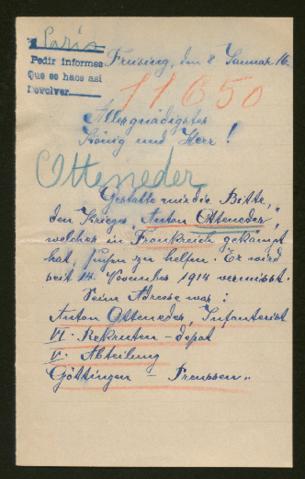 Paris
Pedir informes
Que se haos asi
Devolver
Freising, den 8 Januar 16.
11650
Allergnädigster
König und Herr!
Otteneder
Gestatte mir die Bitte,
den Krieger, Anton Otteneder,
welcher in Frankreich gekämpft
hat, suchen zu helfen. Er wird
seit 14. November 1914 vermisst.
Seine Adresse war:
Anton Otteneder, Infanterist
VI. Rekruten-depot
V. Abteilung
Göttingen – Preussen„